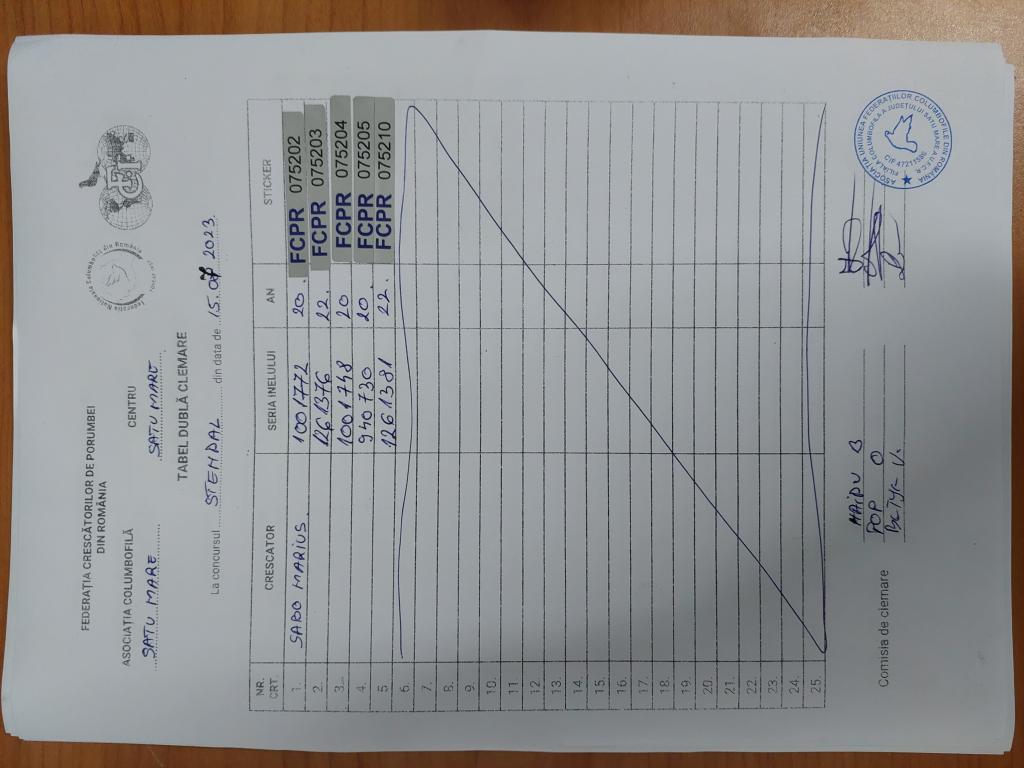 FEDERAȚIA CRESCĂTORILOR DE PORUMBEI
DIN ROMÂNIA
ASOCIAȚIA COLUMBOFILĂ CENTRU
SATU MARE SATU MARE
Federația Națională Columbofilă din România
FCI
TABEL DUBLĂ CLEMARE
La concursul STENDAL din data de 15.07 2023.
NR. CRT. CRESCATOR SERIA INELULUI AN STICKER
1. SABO MARIUS 1001772 20. FCPR 075202
2. 1261376 22. FCPR 075203
3. 1001748 20 FCPR 075204
4. 940730 20. FCPR 075205
5 1261381 22. FCPR 075210
6.
7.
8.
9.
10.
11.
12.
13.
14.
15.
16.
17.
18.
19.
20.
21.
22.
23.
24.
25.
Comisia de clemare
HAIDU B
POP O
V.
ASOCIAȚIA UNIUNEA FEDERAȚIILOR COLUMBOFILE DIN ROMANIA
FILIALA COLUMBOFILA A JUDEȚULUI SATU MARE A U.F.C.R.
CIF 47211586